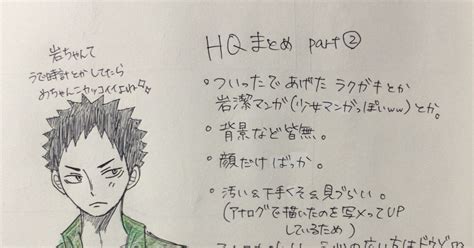 岩ちゃんて
うで時計とかしてたら
めちゃんこカッコイイよね
HQまとめ part②
・ついったであげたラクガキとか
岩潔マンガ(少女マンガっぽいww)とか。
・背景など皆無。
・顔だけばっか。
・汚い&下手くそ&見づらい。
(アナログで描いたのを写メってUP
しているため)